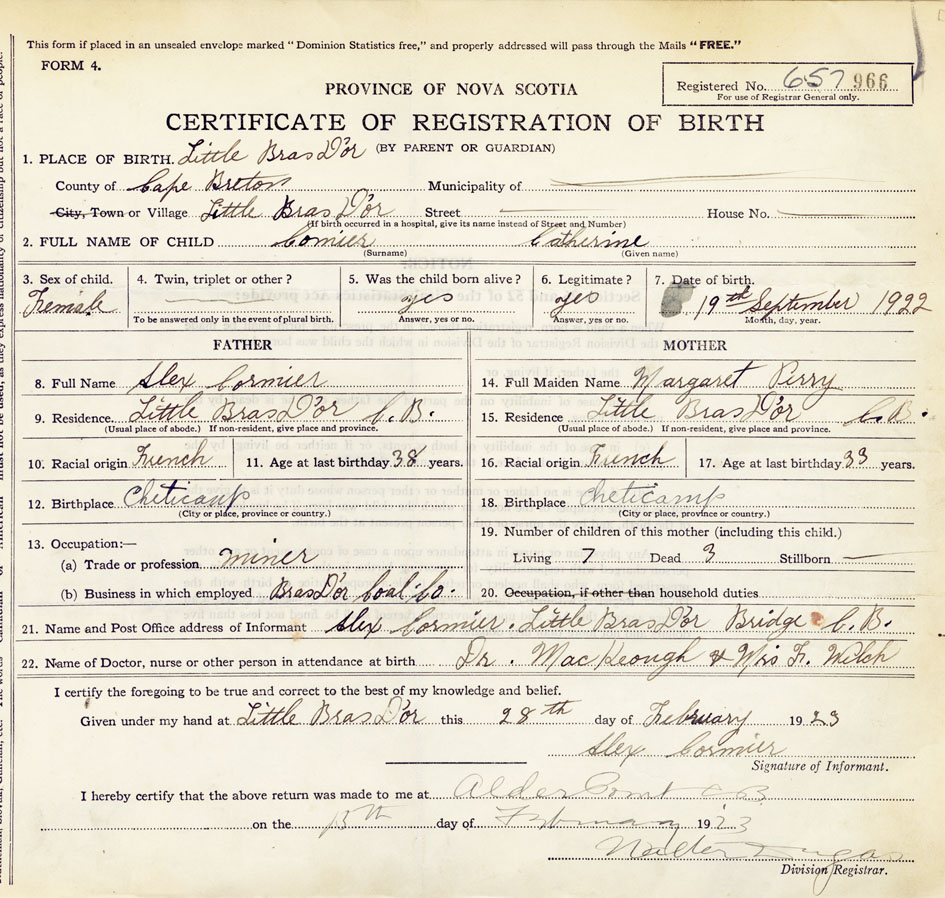 This form if placed in an unsealed envelope marked "Dominion Statistics free," and properly addressed will pass through the Mails "FREE."
FORM 4.
Registered No. 657 966
For use of Registrar General only.
PROVINCE OF NOVA SCOTIA
CERTIFICATE OF REGISTRATION OF BIRTH
(BY PARENT OR GUARDIAN)
1. PLACE OF BIRTH. Little Bras D'or
County of Cape Breton Municipality of
City, Town or Village Little Bras D'or Street House No.
(If birth occurred in a hospital, give its name instead of Street and Number)
2. FULL NAME OF CHILD Comier Catherine
(Surname) (Given name)
3. Sex of child. 4. Twin, triplet or other? 5. Was the child born alive? 6. Legitimate? 7. Date of birth.
Female yes yes 19th September 1922
To be answered only in the event of plural birth. Answer, yes or no. Answer, yes or no. Month, day, year.
FATHER MOTHER
8. Full Name Alex Cormier 14. Full Maiden Name Margaret Perry
9. Residence. Little Bras D'or C.B. 15. Residence Little Bras D'or C.B.
(Usual place of abode.) If non-resident, give place and province. (Usual place of abode.) If non-resident, give place and province.
10. Racial origin French 11. Age at last birthday 38 years. 16. Racial origin French 17. Age at last birthday 33 years.
12. Birthplace Cheticamp 18. Birthplace Cheticamp
(City or place, province or country.) (City or place, province or country.)
13. Occupation:— 19. Number of children of this mother (including this child.)
(a) Trade or profession miner Living 7 Dead 3 Stillborn
(b) Business in which employed Bras D'or Coal Co. 20. Occupation, if other than household duties
21. Name and Post Office address of Informant Alex Cormier. Little Bras D'or Bridge C.B.
22. Name of Doctor, nurse or other person in attendance at birth Dr. MacKeough & Mrs Fr. Welch
I certify the foregoing to be true and correct to the best of my knowledge and belief.
Given under my hand at Little Bras D'or this 28th day of February 1923
Alex Cormier
Signature of Informant.
I hereby certify that the above return was made to me at Alder Point CB
on the day of February 1923
Walter Dugas
Division Registrar.